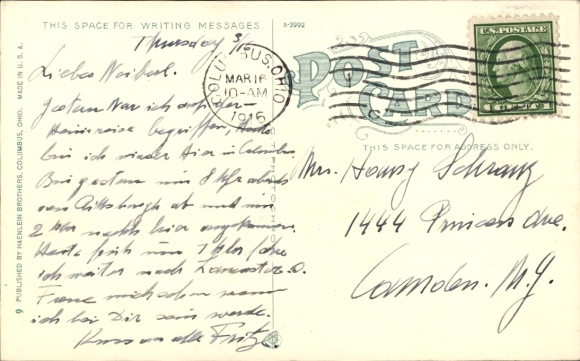 THIS SPACE FOR WRITING MESSAGES
A-3992
POST CARD
THIS SPACE FOR ADDRESS ONLY.
9 PUBLISHED BY HAENLEIN BROTHERS, COLUMBUS, OHIO. MADE IN U.S.A.
COLUMBUS, OHIO
MAR 16
10-AM
1916
U.S. POSTAGE
1 CENT 1
Thursday 3/16
Liebes Weiberl.
Gestern war ich auf der
Heimreise begriffen, Heute
bin ich wieder hier in Columbus
Bin gestern um 8 Uhr abends
von Pittsburgh ab und um
2 Uhr nachts hier angekommen.
Heute früh um 7 Uhr
ich weiter nach Lancaster O.
Freue mich schon wenn
ich bei Dir sein werde.
Kuss an alle Fritz.
Mrs. Henry Schranz
1444 Princess Ave.
Camden. N.J.